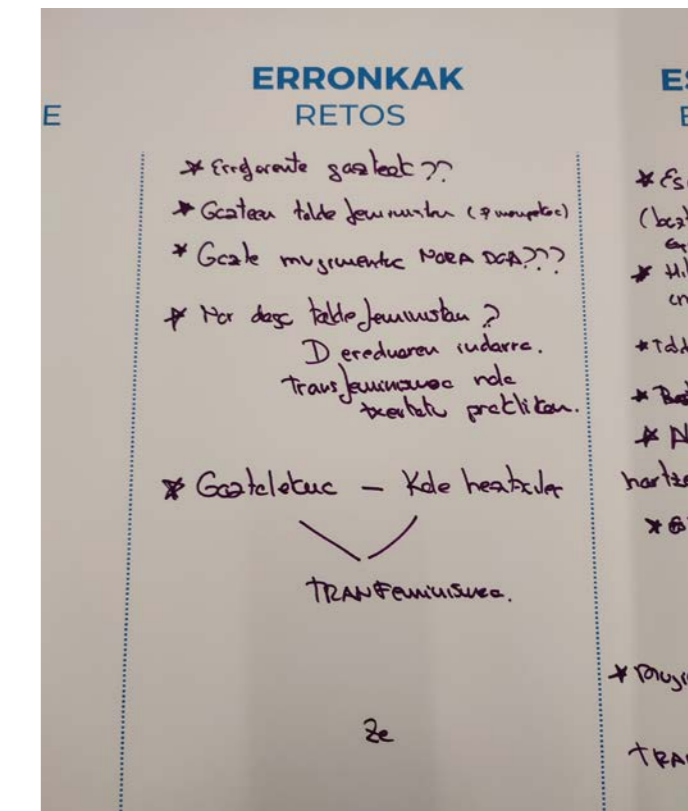 E
ERRONKAK
RETOS
* Erreferente gazteak ??
* Gazteen talde feministan
* Gazte mugimentua NORA DOA???
* Nor dago talde feministan ?
D ereduaren indarra.
Transfeminismoa nola
txertatu praktikan.
* Gaztelekua — Kale hezitzaile
TRANFeminismoa.
Ze
ES
E
* Es
* Hi
* Tald
* N
hartze
* Mugi
TRAN